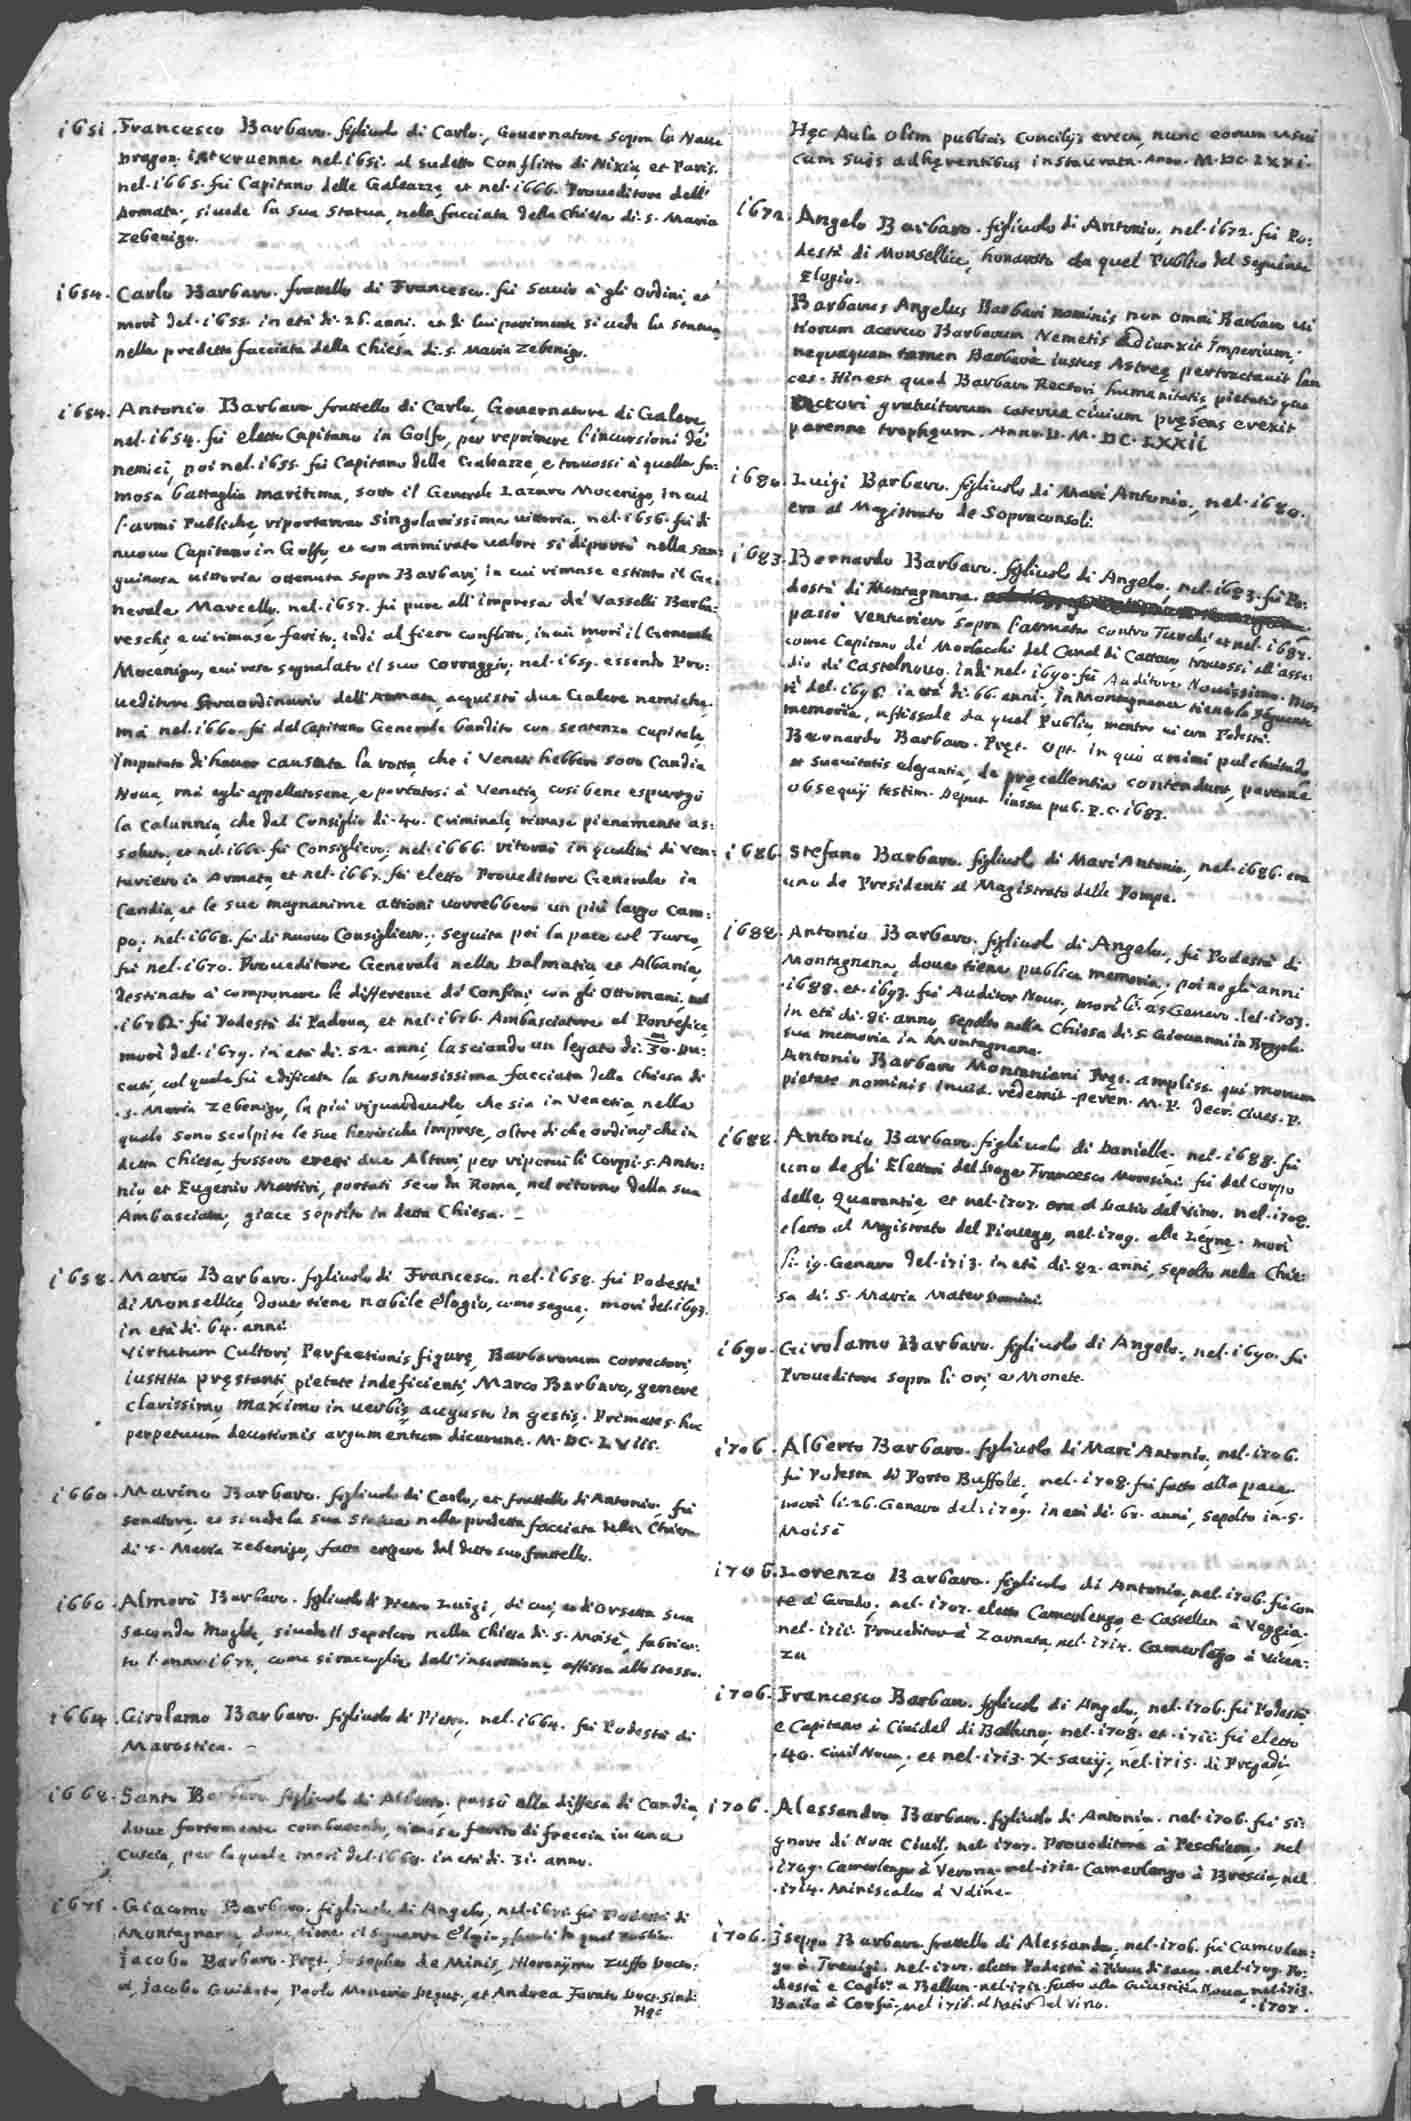 1651. Francesco Barbaro. figliuolo di Carlo, Gouernatore sopra la Naue
Dragon. interuenne nel. 1651. al sudetto Conflitto di Nixia, et Paris.
nel. 1665. fù Capitano delle Galeazze, et nel. 1666. Proueditore dell'
Armata, si uede la sua statua, nella facciata della Chiesa di. S. Maria
Zebenigo.
1654. Carlo Barbaro. fratello di Francesco. fù Sauio à gli Ordini, et
morì del. 1655. in età di. 26. anni. et di lui parimente si uede la statua,
nella predetta facciata della Chiesa di. S. Maria Zebenigo.
1654. Antonio Barbaro frattello di Carlo, Gouernatore di Galere,
nel. 1654. fù eletto Capitano in Golfo, per reprimere l'incursioni de
nemici, poi nel. 1655. fù Capitano delle Galeazze, e trouossi à quella fa:
mosa battaglia maritima, sotto il Generale Lazaro Mocenigo, in cui
l'armi Publiche, riportarono singolarissima uittoria, nel. 1656. fù di
nuouo Capitano in Golfo, et con ammirato ualore si diportò nella san:
guinosa uittoria ottenuta sopra Barbari, in cui rimase estinto il Ge:
nerale Marcello. nel. 1657. fù pure all'impresa de' Vasselli Barba:
reschi, e ui rimase ferito, indi al fiero conflitto, in cui morì il Generale
Mocenigo, oue rese segnalato il suo Corraggio; nel. 1659. essendo Pro:
ueditore straordinario dell'Armata, acquistò due Galere nemiche.
mà nel. 1660. fù del Capitano Generale bandito con sentenza capitale,
imputato di hauer causata la rotta, che i Veneti hebbero sotto Candia
Noua, mà egli appellatosene, e portatosi à Venetia, così bene espurgò
la calunnia, che dal Consiglio di. 40. Criminale, rimase pienamente as:
soluto. et nel. 1661. fù Consigliero; nel. 1666. ritornò in qualità di Ven:
turiero in Armata, et nel. 1667. fù eletto Proueditore Generale in
Candia, et le sue magnanime attioni uorrebbero un più largo Cam:
po. nel. 1668. fù di nuouo Consigliero; seguita poi la pace col Turco,
fù nel. 1670. Proueditore Generale nella Dalmatia, et Albania,
destinato à componere le differenze de' Confini con gli Ottomani, nel
. 1672. fù Podestà di Padoua, et nel. 1676. Ambasciatore al Pontefice,
morì del. 1679. in età di. 52. anni, lasciando un legato di. 30. Du:
cati, col quale fù edificata la sontuosissima facciata della Chiesa di
. S. Maria Zebenigo, la più riguardeuole che sia in Venetia, nella
quale sono scolpite le sue heroiche imprese, oltre di che ordinò, che in
detta Chiesa, fossero eretti due Altari, per riporui li Corpi. S. Anto:
nio, et Eugenio Martiri, portati seco da Roma, nel ritorno della sua
Ambasciata, giace sepolto in detta Chiesa. –
1658. Marco Barbaro. figliuolo di Francesco. nel. 1658. fù Podestà
di Monsellice, doue tiene nobile elogio, come segue; morì del. 1693.
in età di. 64. anni.
Virtutum Cultori, Perfectionis figurę, Barbarorum correctori,
iustitia pręstanti, pietate indeficienti, Marco Barbaro, genere
clarissimo, maximo in uerbis, augusto in gestis. Primates. hoc
perpetuum deuotionis argumentum dicarunt. M. DC. LVIII.
1660. Marino Barbaro. figliuolo di Carlo, et frattello di Antonio, fù
senatore, et si uede la sua Statua nella predetta facciata della Chiesa
di. S. Maria Zebenigo, fatta erigere dal detto suo frattello.
1660. Almorò Barbaro. figliuolo di Pietro Luigi, di cui, et d'Orsetta sua
seconda Moglie, si uede il sepolcro nella Chiesa di. S. Moisè, fabrica:
to l'anno. 1677. come si raccoglie dall'inscrittione affissa allo stesso.
1664. Girolamo Barbaro. figliuolo di Pietro, nel. 1664. fù Podestà di
Marostica. –
1668. Santo Barbaro figliuolo di Alberto, passò alla diffesa di Candia,
doue fortemente combattendo, rimase ferito di freccia in una
Coscia, per la quale morì del. 1668. in età di. 31. anno.
1671. Giacomo Barbaro. figliuolo di Angelo, nel. 1671. fù Podestà di
Montagnana, doue tiene il seguente Elogio, da quel Publico.
Jacobo Barbaro. Pręt. Josepho de Minis, Hieronÿmo Zuffo Docto:
et, Jacobo Guidoto, Paolo Deput. et Andrea Forato Doct. Sind:
Hęc
Hęc Aula olim publicis Concilijs erecta, nunc eorum usui
cum suis adhęrentibus instaurata. Anno. M. DC. LXXI.
1672. Angelo Barbaro. figliuolo di Antonio, nel. 1672. fù Po:
destà di Monsellice, honorato da quel Publico del seguente
Elogio.
Barbarus Angelus Barbari nominis non omni Barbaro ui
tiorum aceruo Barbarum Nemetis adiunxit Imperium;
nequaquam tamen Barbarè iustus Astreę pertractauit lan
ces. Hinc est quod Barbaro Rectori, humanitatis, pietatis que
gratuitorum caterua ciuium pręsens erexit
perenne trophęum. Anno D. M. DC. LXXII
1680. Luigi Barbaro. figliuolo di Marc'Antonio, nel. 1680.
era al Magistrato de Sopraconsoli.
1683. Bernardo Barbaro. figliuolo di Angelo, nel. 1683. fù Po:
destà di Montagnana.
passò Venturiero sopra l'armata contro Turchi, et nel. 1687.
come Capitano de' Morlacchi del Canal di Cattaro, trouossi all'asse:
dio di Castelnouo. indi nel. 1690. fù Auditore Nouissimo. mo:
rì del. 1696. in età di. 66. anni. in Montagnana tiene la seguente
memoria, affissale da quel Publico, mentre ui era Podestà.
Bernardo Barbaro. Pręt. Opt. in quo animi pulchritudo
et suauitatis elegantia, de pręcellentia contendunt, perenne
obsequij testim. Deput iussu pub. P. C. 1683.
1686. Stefano Barbaro. figliuolo di Marc'Antonio, nel. 1686. era
uno de Presidenti al Magistrato delle Pompe.
1688. Antonio Barbaro. figliuolo di Angelo, fù Podestà di
Montagnana, doue tiene publica memoria; poi ne gli anni
. 1688. et. 1697. fù Auditor Nouo, morì li. 25 Genaro del. 1703.
in età di. 81. anno, sepolto nella Chiesa di. S. Giouanni in Bragola.
sua memoria in Montagnana.
Antonio Barbaro Montaniani Pręt. ampliss. qui morum
pietate nominis inuid. redemit. peren. M. P. decr. ciues. P.
1688. Antonio Barbaro. figliuolo di Danielle, nel. 1688. fù
uno de gli Elettori del Doge Francesco Morosini. fù del Corpo
delle Quarantie, et nel. 1707. era al Datio del Vino. nel. 1708.
eletto al Magistrato del Piouego, nel. 1709. alle Legne. morì
li. 19. Genaro del. 1713. in età di. 82. anni, sepolto nella Chie:
sa di. S. Maria Mater Domini.
1690. Girolamo Barbaro. figliuolo di Angelo, nel. 1690. fù
Proueditore sopra li Ori, e Monete.
1706. Alberto Barbaro. figliuolo di Marc'Antonio, nel. 1706.
fù Podestà di Porto Buffolè. nel. 1708. fù fatto alla pace,
morì li. 26. Genaro del. 1709. in età di. 67. anni, sepolto in. S.
Moisè
1706. Lorenzo Barbaro. figliuolo di Antonio, nel. 1706. fù Con
te à Grado, nel. 1707. eletto Camerlengo, e Castellan à Veggia.
nel. 1711. Proueditor à Zarnata, nel. 1714. Camerlengo à Vicen:
za
1706. Francesco Barbaro. figliuolo di Angelo, nel. 1706. fù Podestà
e Capitano à Ciuidal di Belluno, nel. 1708. et. 1711. fù eletto
. 40. Ciuil Nouo, et nel. 1713. X. Sauij, nel. 1715. di Pregadi.
1706. Alessandro Barbaro. figliuolo di Antonio. nel. 1706. fù si:
gnore di Note Ciuil. nel. 1707. Proueditore à Peschiera. nel
. 1709. Camerlengo à Verona. nel. 1712. Camerlengo à Brescia, nel
. 1714. Miniscalco à Vdine.
1706. Iseppo Barbaro. frattello di Alessandro, nel. 1706. fù Camerlen:
go à Treuigi. nel. 1707. eletto Podestà à Pioue di Sacco. nel. 1709. Po:
destà e Capit.o à Bellun. nel. 1712. fatto alla Giustitia Noua, nel. 1713.
Bailo à Corfù, nel 1716. al Datio del Vino.
. 1707.